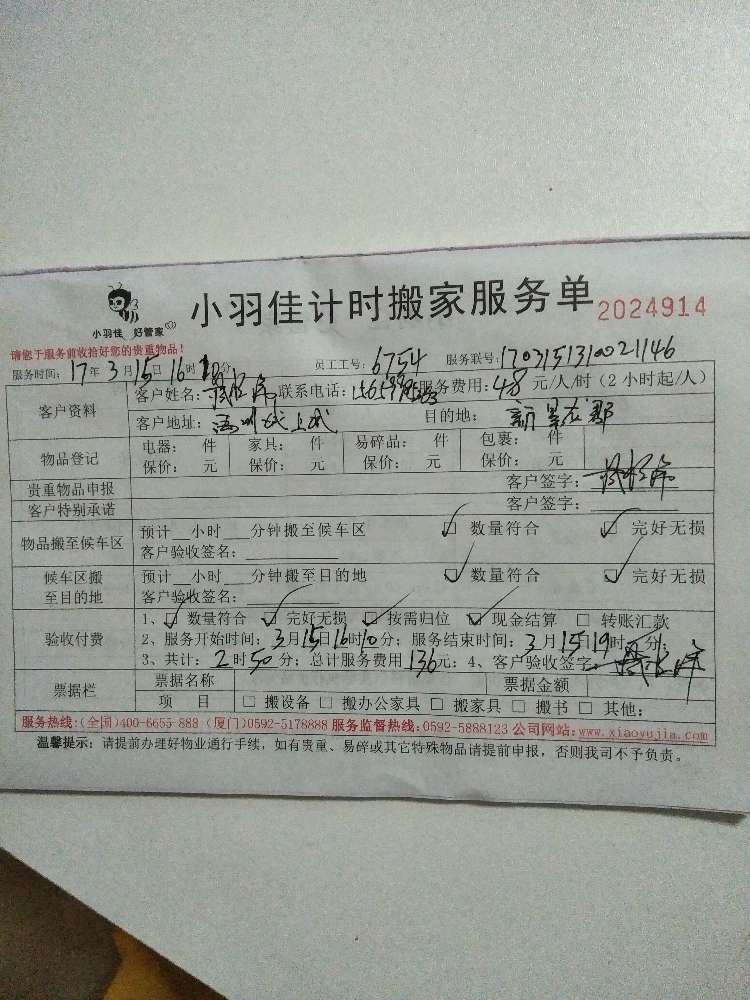 小羽佳 好管家
小羽佳计时搬家服务单 2024914
请您于服务前收拾好您的贵重物品！
服务时间：17年3月15日16时10分 员工工号：6754 服务联号：1703151310021146
客户资料 客户姓名： 联系电话： 服务费用：48元/人/时（2小时起/人）
客户地址： 目的地：
物品登记 电器： 件 家具： 件 易碎品： 件 包裹： 件
保价： 元 保价： 元 保价： 元 保价： 元
贵重物品申报 客户签字：
客户特别承诺 客户签字：
物品搬至候车区 预计__小时___分钟搬至候车区 ☑ 数量符合 ☑ 完好无损
客户验收签名：
候车区搬至目的地 预计__小时___分钟搬至目的地 ☑ 数量符合 ☑ 完好无损
客户验收签名：
验收付费 1、☑ 数量符合 ☑ 完好无损 ☑ 按需归位 ☑ 现金结算 □ 转账汇款
2、服务开始时间：3月15日16时10分；服务结束时间：3月15日19时 分；
3、共计：2时50分；总计服务费用136元；4、客户验收签字：
票据栏 票据名称 票据金额
项 目 □ 搬设备 □ 搬办公家具 □ 搬家具 □ 搬书 □ 其他：
服务热线：（全国）400-6655 888（厦门）0592-5178888 服务监督热线：0592-5888123 公司网站：www.xiaoyujia.com
温馨提示：请提前办理好物业通行手续，如有贵重、易碎或其它特殊物品请提前申报，否则我司不予负责。